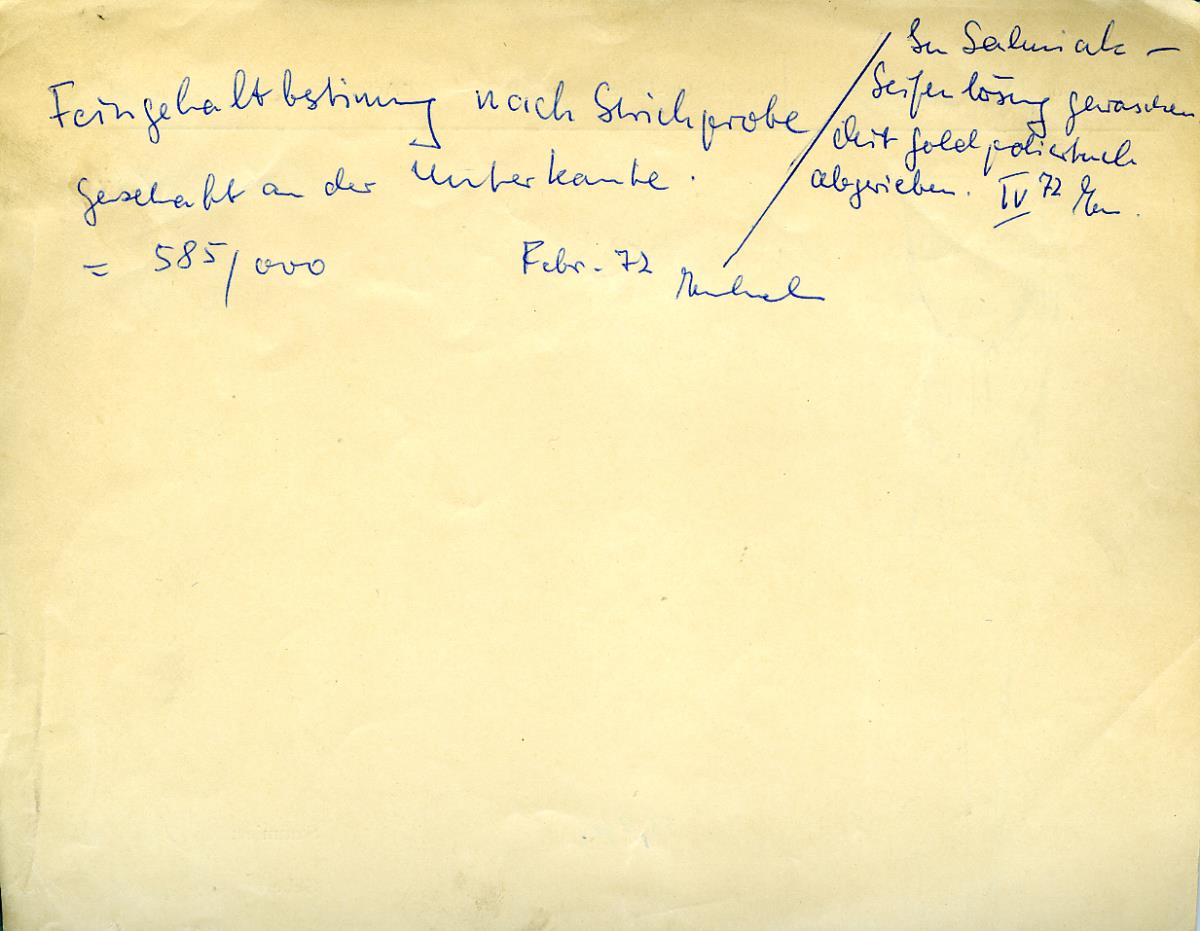 Feingehaltbestimung nach Strichprobe
geschabt an der Unterkante.
= 585/000 Febr. 72
In Salmiak-
Seifenlösung gewaschen
Mit Goldpoliertuch
abgerieben. IV 72